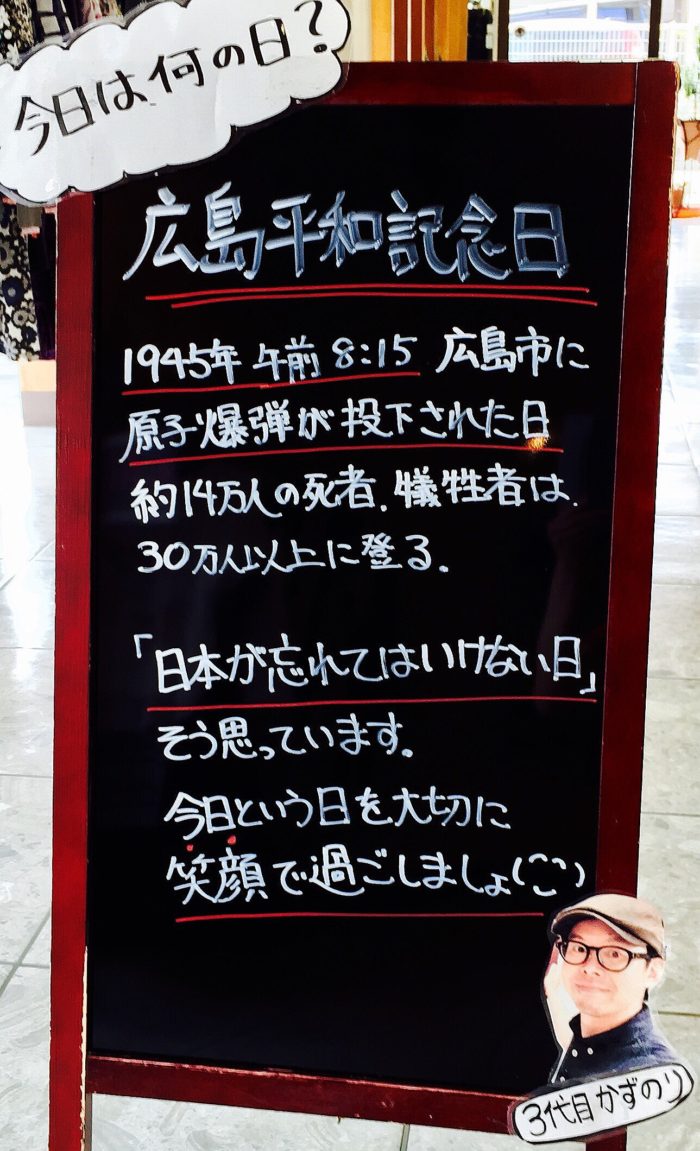 今日は何の日?
広島平和記念日
1945年 午前 8:15 広島市に
原子爆弾が投下された日
約14万人の死者.犠牲者は.
30万人以上に登る.
「日本が忘れてはいけない日」
そう思っています。
今日という日を大切に
笑顔で過ごしましょ(^^)
3代目かずのり